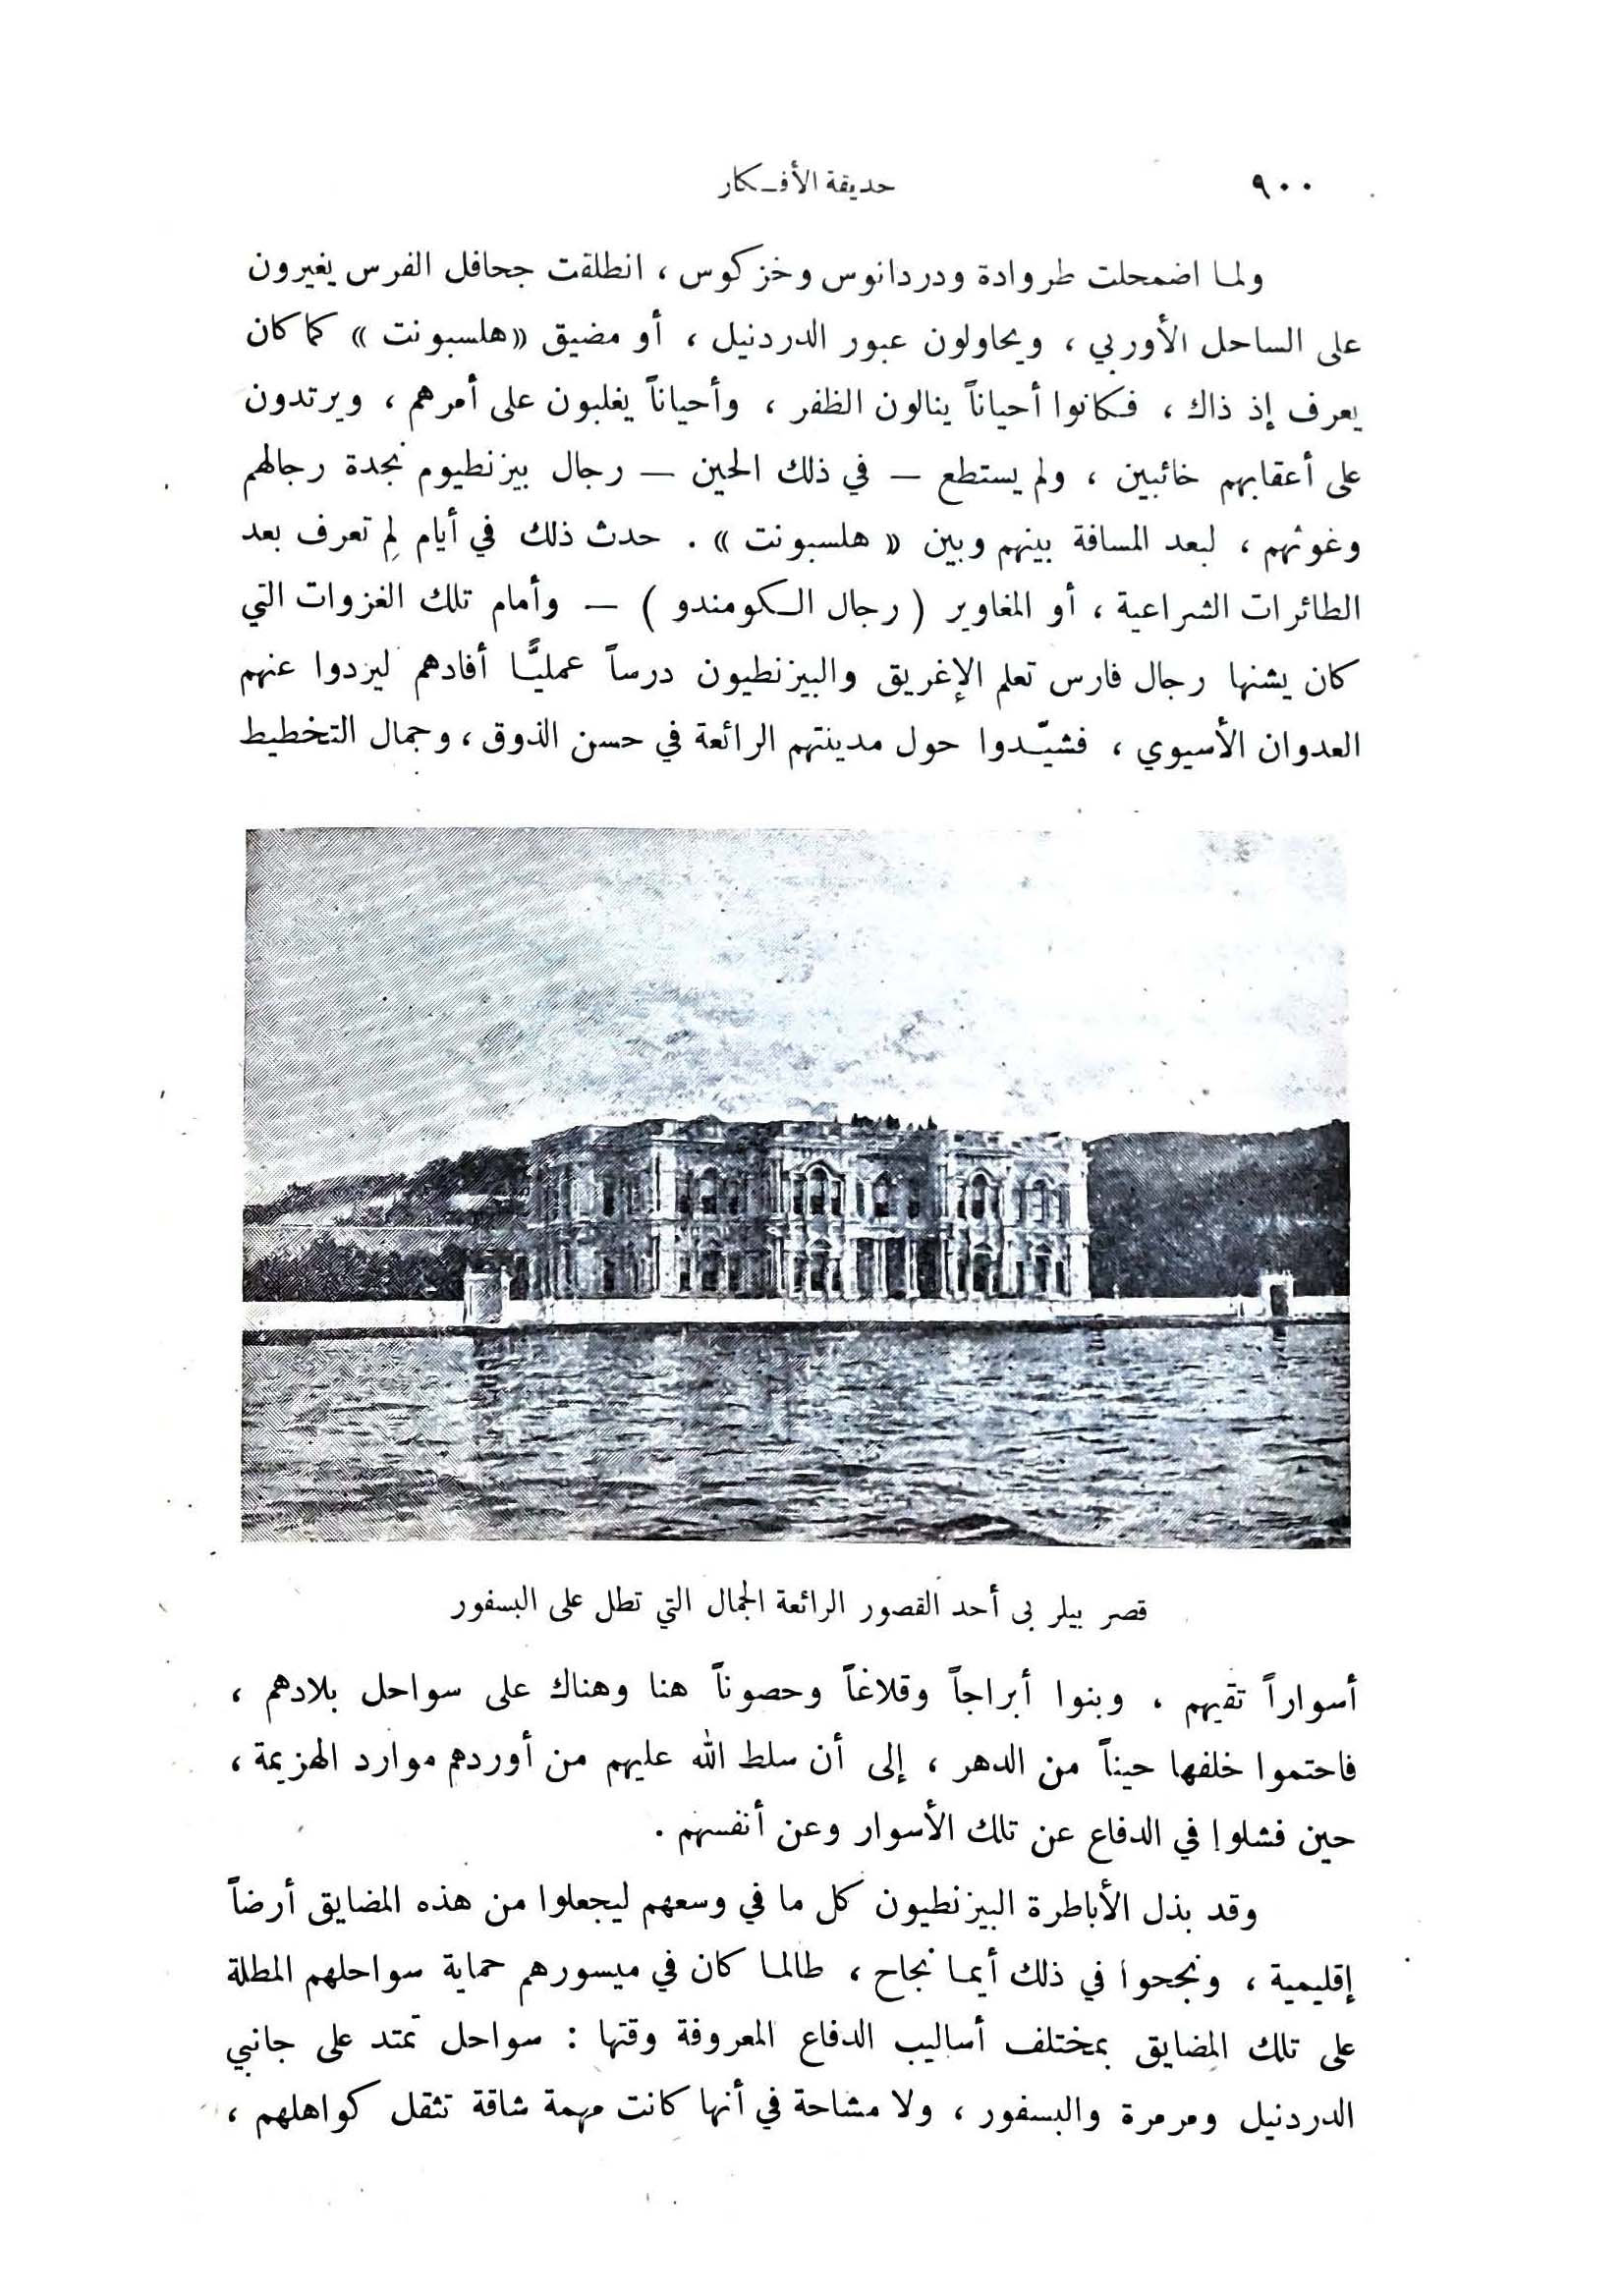 ٩٠٠
حديقة الأفكار
ولما اضمحلت طروادة ودردانوس وخزكوس ، انطلقت جحافل الفرس يغيرون
على الساحل الأوربي ، ويحاولون عبور الدردنيل ، أو مضيق «هلسبونت» كما كان
يعرف إذ ذاك ، فكانوا أحياناً ينالون الظفر ، وأحياناً يغلبون على أمرهم ، ويرتدون
على أعقابهم خائبين ، ولم يستطع – في ذلك الحين – رجال بيزنطيوم نجدة رجالهم
وغوثهم ، لبعد المسافة بينهم وبين « هلسبونت» . حدث ذلك في أيام لم تعرف بعد
الطائرات الشراعية ، أو المغاوير ( رجال الكومندو ) – وأمام تلك الغزوات التي
كان يشنها رجال فارس تعلم الإغريق والبيزنطيون درساً عمليًّا أفادهم ليردوا عنهم
العدوان الأسيوي ، فشيّدوا حول مدينتهم الرائعة في حسن الذوق ، وجمال التخطيط
قصر بيلر بى أحد القصور الرائعة الجمال التي تطل على البسفور
أسواراً تقيهم ، وبنوا أبراجاً وقلاعاً وحصوناً هنا وهناك على سواحل بلادهم ،
فاحتموا خلفها حيناً من الدهر ، إلى أن سلط الله عليهم من أوردهم موارد الهزيمة ،
حين فشلوا في الدفاع عن تلك الأسوار وعن أنفسهم .
وقد بذل الأباطرة البيزنطيون كل ما في وسعهم ليجعلوا من هذه المضايق أرضاً
إقليمية ، ونجحوا في ذلك أيما نجاح ، طالما كان في ميسورهم حماية سواحلهم المطلة
على تلك المضايق بمختلف أساليب الدفاع المعروفة وقتها : سواحل تمتد على جانبي
الدردنيل ومرمرة والبسفور ، ولا مشاحة في أنها كانت مهمة شاقة تثقل كواهلهم ،